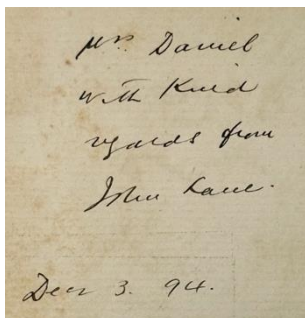 Mrs Daniel
with Kind
regards from
John Lane.
Decr 3. 94.